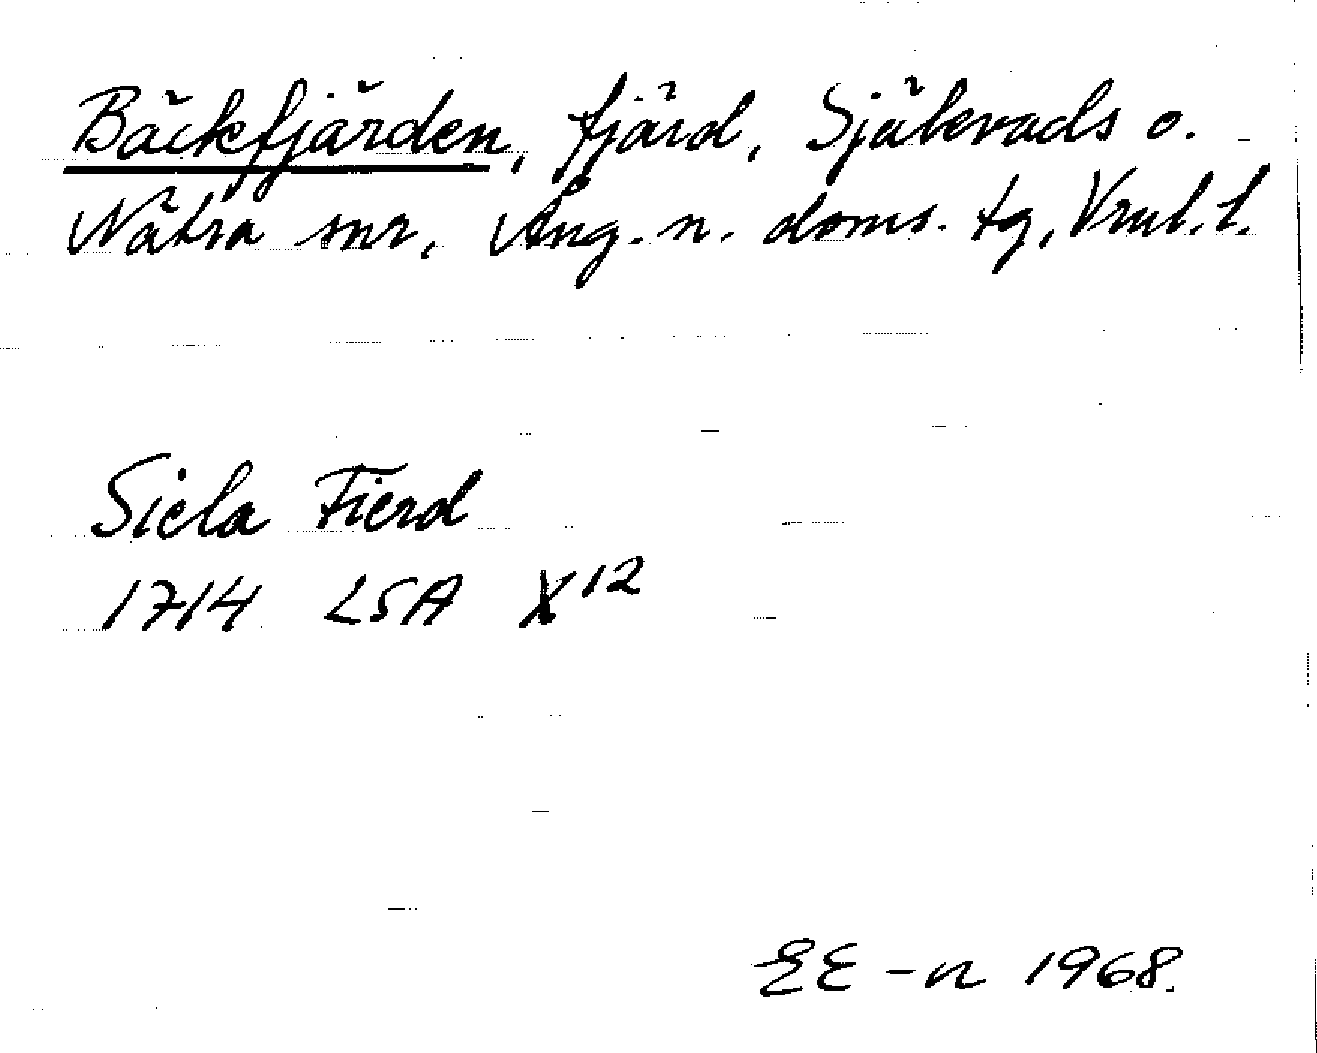 Bäckfjärden, fjärd, Själevads o.
Nätra snr, Ång. n. doms. tg, Vrnl. l.
Siela Fierd
1714 LSA X12
EE-n 1968.